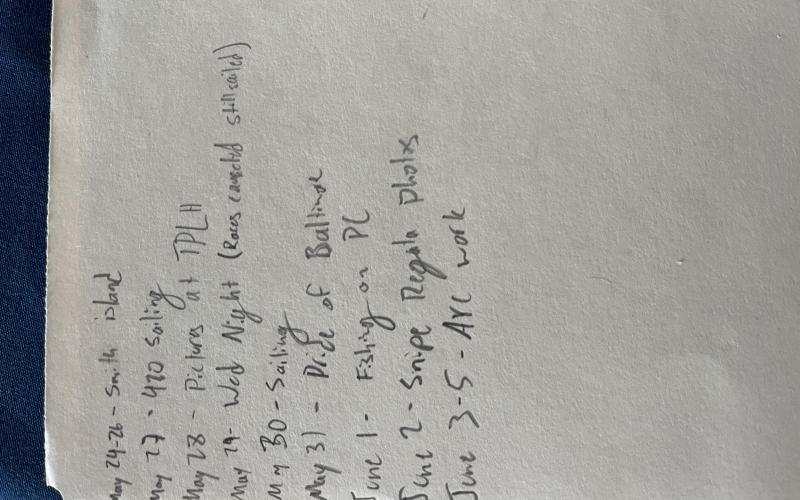 May 24-26 - Smith island
May 27 - 420 Sailing
May 28 - Pictures at TPLH
May 29 - Wed Night (Races canceled still sailed)
May 30 - Sailing
May 31 - Pride of Baltimore
June 1 - Fishing on PC
June 2 - Snipe Regatta photos
June 3-5 - Arc work